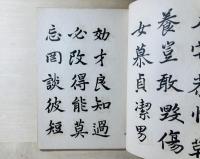 養豈敢毀傷
女慕貞潔男
効才良知過
必改得能莫
忘罔談彼短